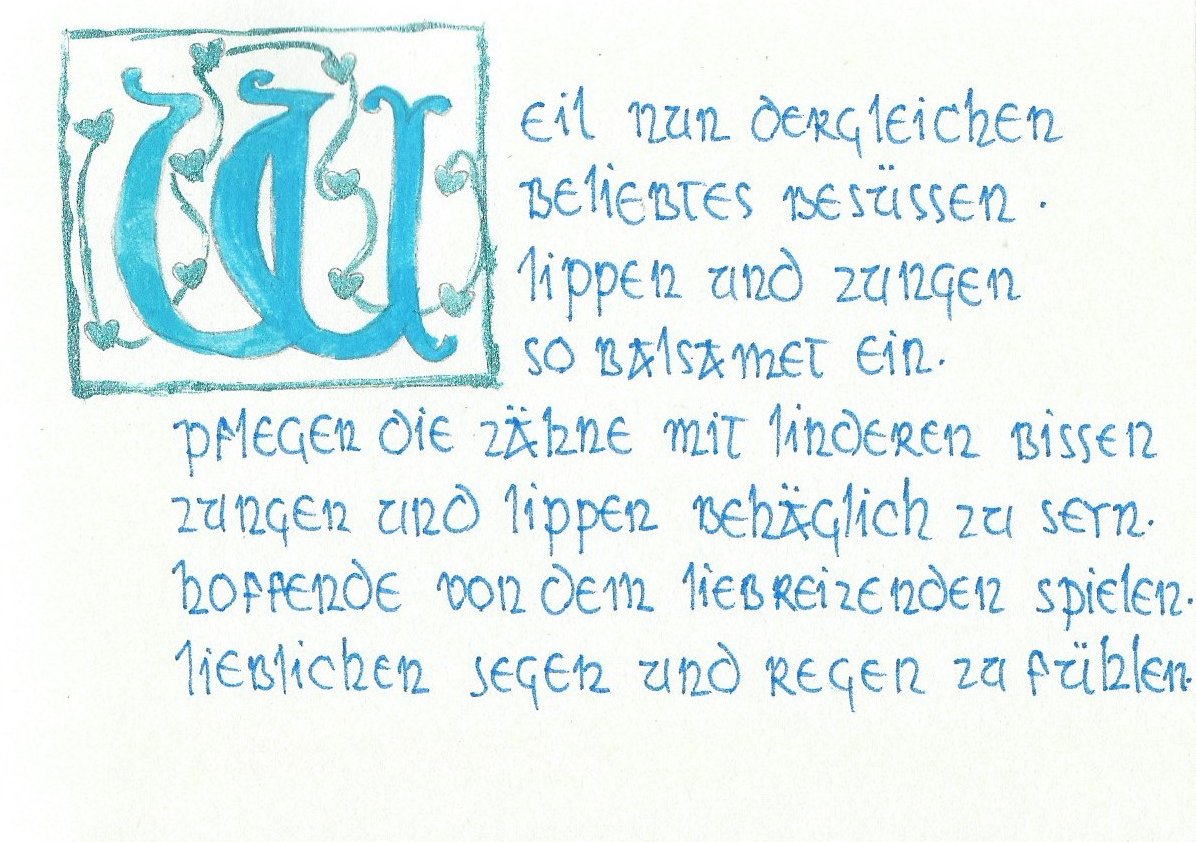 Weil nun dergleichen
beliebtes besüssen.
lippen und zungen
so balsamet ein.
pflegen die zähne mit linderen bissen
zungen und lippen behäglich zu seyn.
hoffende von dem liebreizenden spielen.
lieblichen segen und regen zu fühlen.